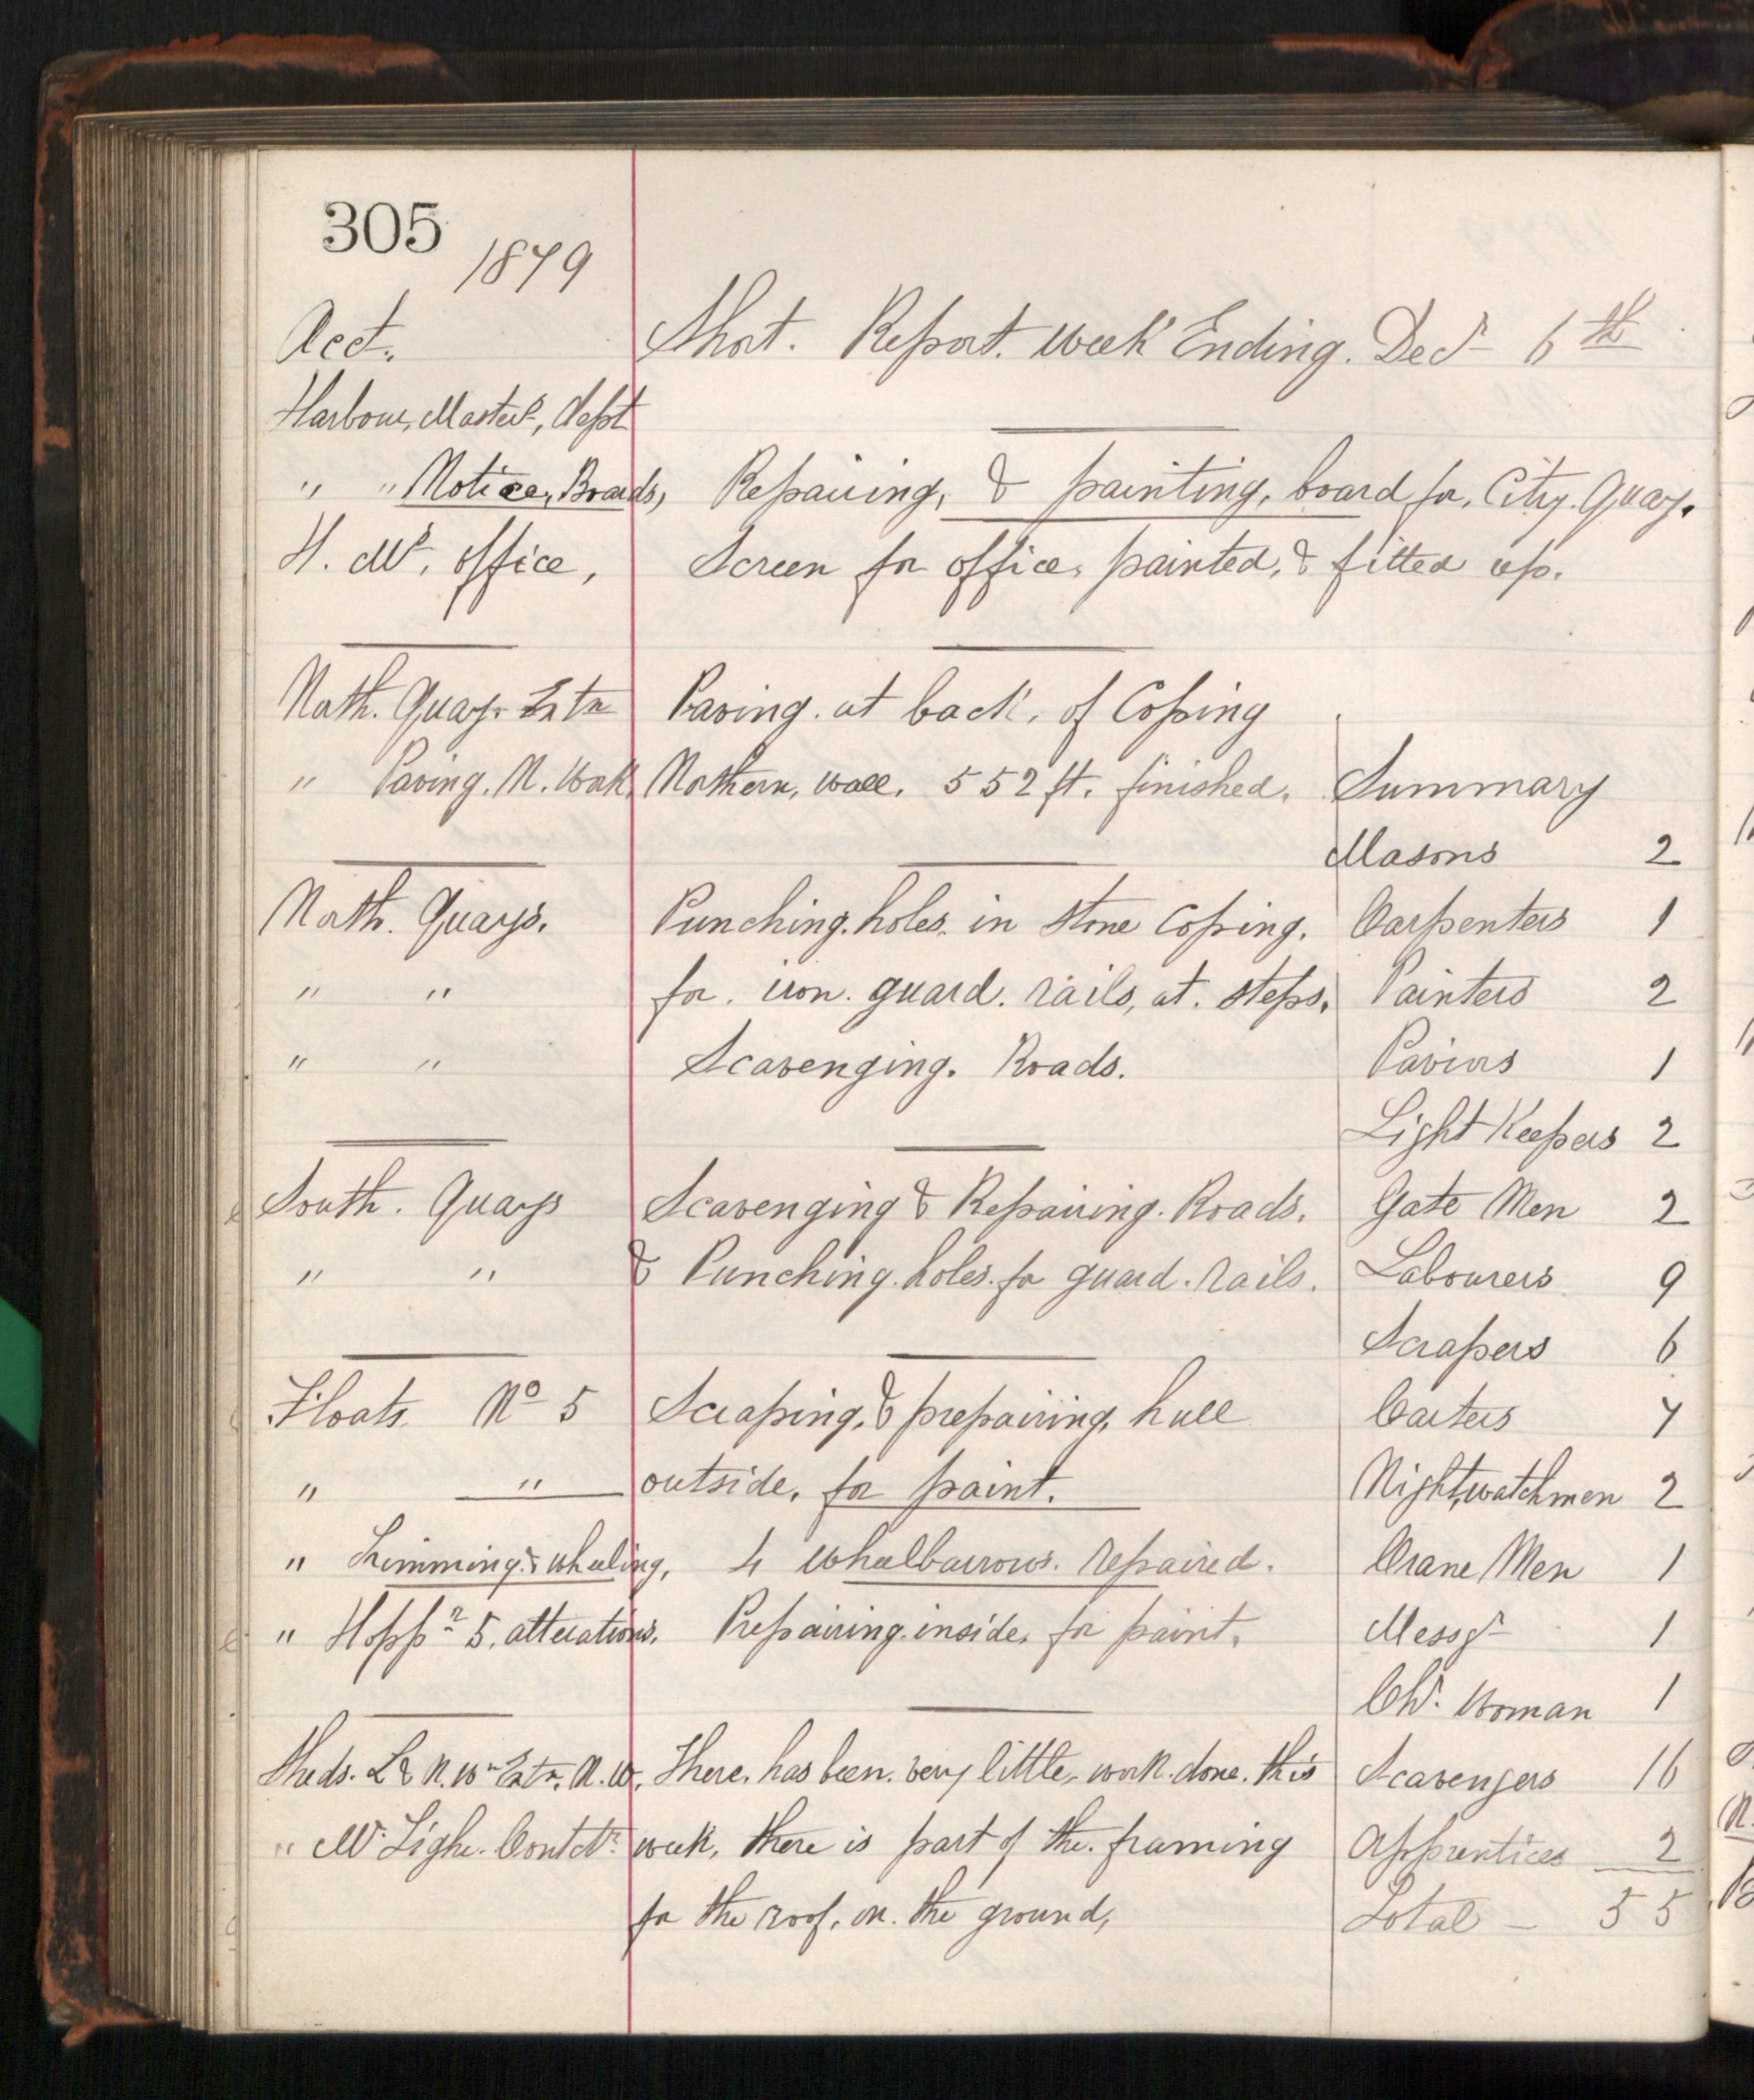 305
1879
Acct. Short. Report. week Ending. Decr 6th
Harbour, Masters, dept
" " Notice, Boards, Repairing, & painting, board for, City. Quay.
H. Ms. office, Screen for office, painted, & fitted up.
North. Quay. Extn Paving. at back, of Coping
" Paving. N. Wall Northern, wall. 552 ft. finished. Summary
Masons 2
North. Quays. Punching. holes. in Stone Coping. Carpenters 1
" " for. iron. guard. rails, at. steps, Painters 2
" " Scavenging. Roads. Paviors 1
Light Keepers 2
South. Quays Scavenging & Repairing. Roads. Gate Men 2
" " & Punching. holes. for guard. rails. Labourers 9
Scrapers 6
Floats. No 5 Scraping, & prepairing, hull Carters 7
" " outside, for paint. Nightwatchmen 2
" Trimming & wheeling, 4 wheelbarrows. repaired. Crane Men 1
" Hoppr 5. alterations. Prepairing. inside. for paint, Messgr 1
Chr. Woman 1
Sheds. L & N. Wn Extn. N. W. There, has been. very little, work. done. this Scavengers 16
" Mr. Tighe. Contctr week, there is part of the. framing Apprentices 2
for the roof, on. the ground, Total — 55